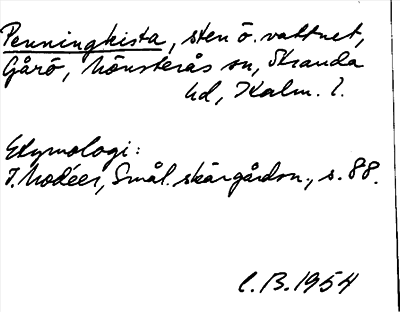 Penningkista, sten ö. vattnet,
Gårö, Mönsterås sn, Stranda
hd, Kalm. l.
Etymologi:
I. Modéer, Smål. skärgårdsn., s. 88.
C. B. 1954